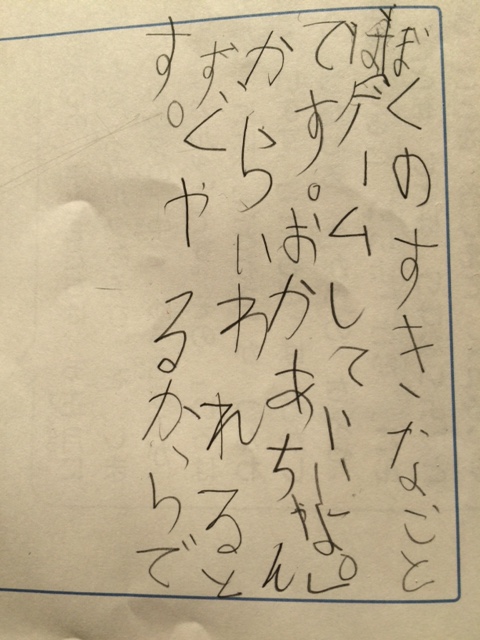 ぼくのすきなこと
ばは「ゲームしていいよ。」
です。おかあちゃん
からいわれると
ずぐやるからで
す。